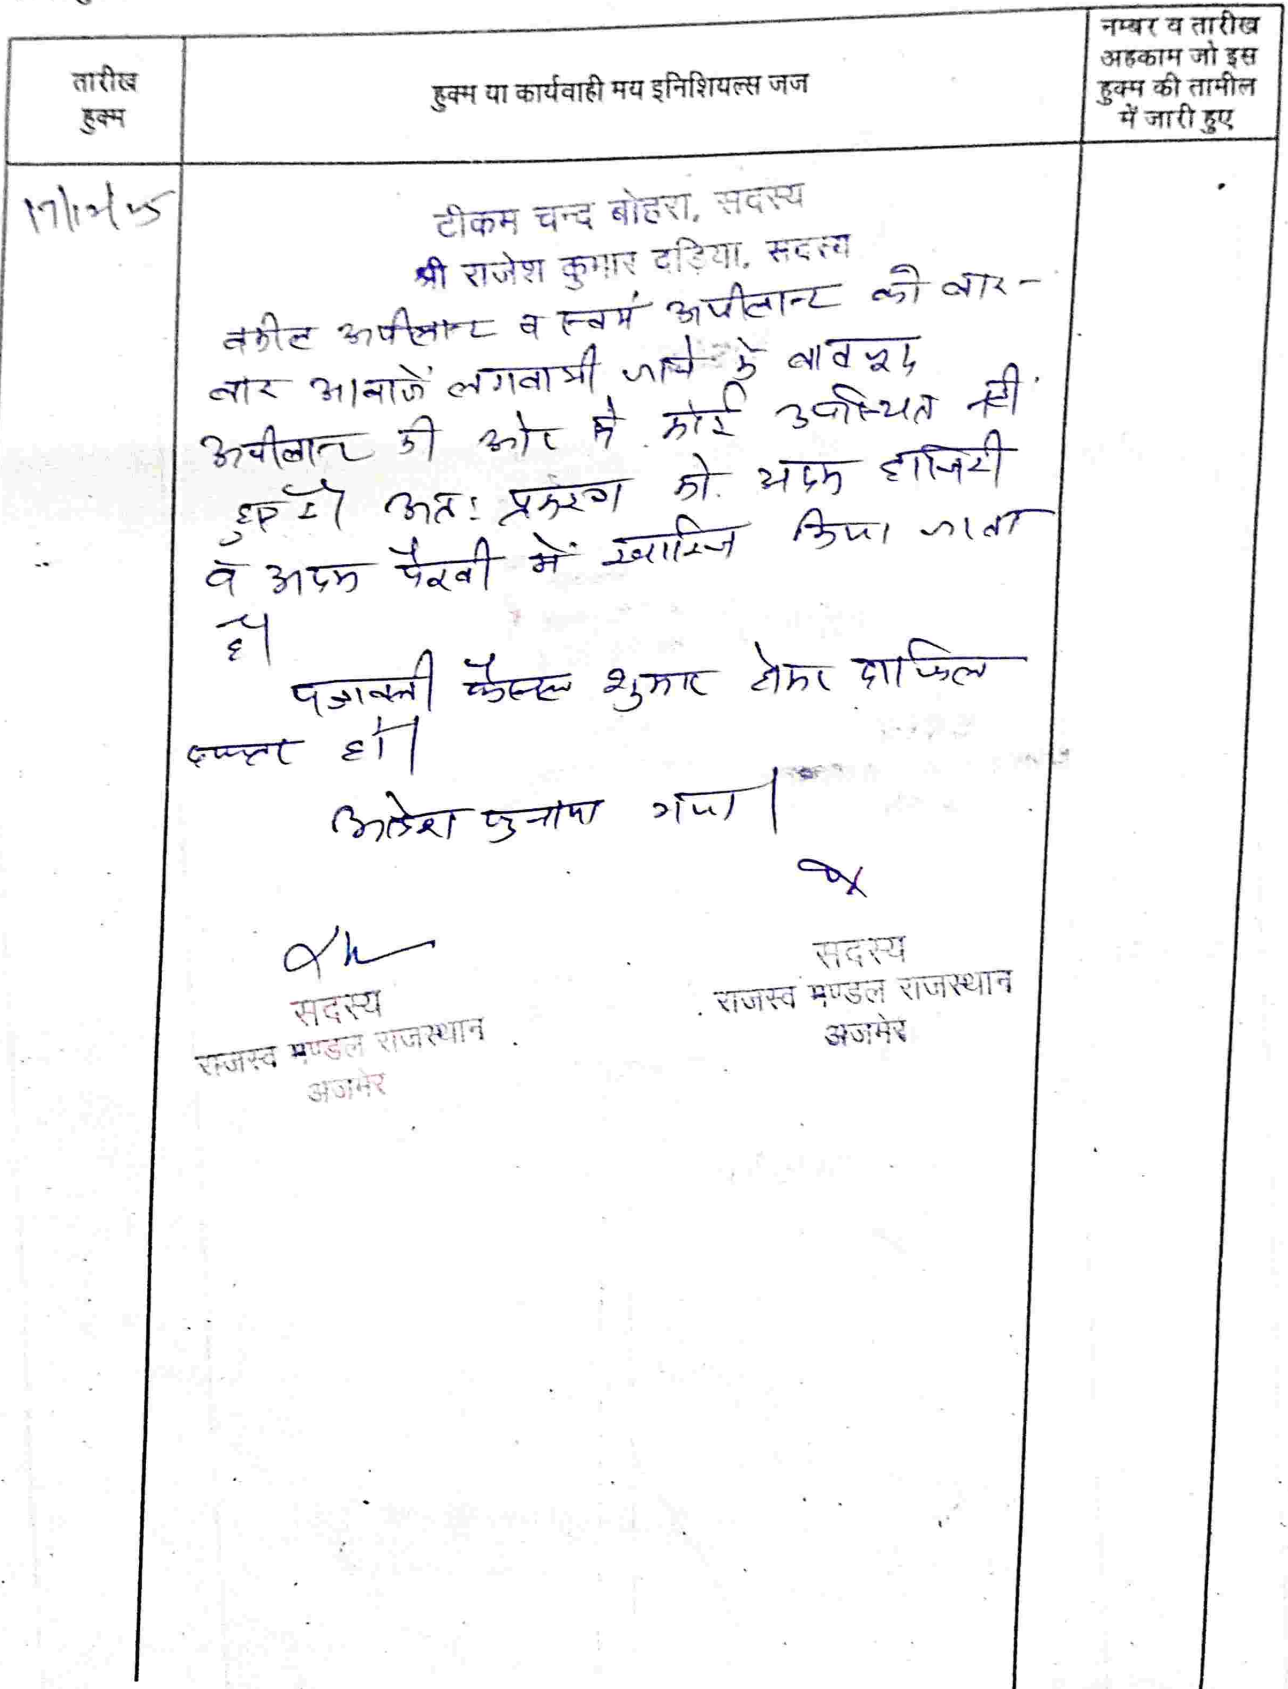 तारीख
हुक्म
हुक्म या कार्यवाही मय इनिशियल्स जज
नम्बर व तारीख
अहकाम जो इस
हुक्म की तामील
में जारी हुए
टीकम चन्द बोहरा, सदस्य
श्री राजेश कुमार दड़िया, सदस्य
वकील अपीलान्ट व स्वयं अपीलान्ट को बार-
बार आवाजें लगवायी जाने के बावजूद
अपीलान्ट की ओर से कोई उपस्थित नहीं
अतः प्रकरण को अदम हाजिरी
व अदम पैरवी में खारिज किया जाता
है।
पत्रावली फैसल शुमार होकर दाखिल
दफ्तर हो।
आदेश सुनाया गया।
सदस्य
राजस्व मण्डल राजस्थान
अजमेर
सदस्य
राजस्व मण्डल राजस्थान
अजमेर